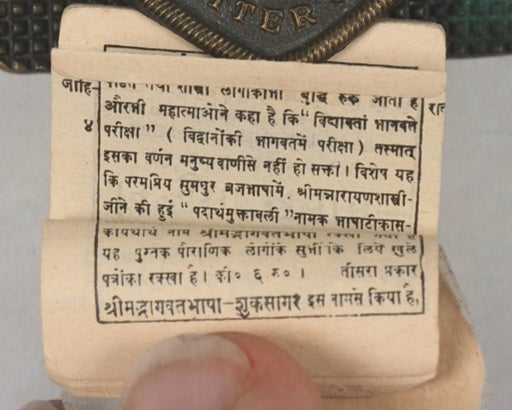 ITER
पंडित तथा शास्त्री लोगोंकीभी बुद्धि रुक जाती है
औरभी महात्माओंने कहा है कि “ विद्यावतां भागवते
परीक्षा ” ( विद्वानोंकी भागवतमें परीक्षा ) तस्मात्
इसका वर्णन मनुष्यवाणीसे नहीं हो सक्ता । विशेष यह
कि परमप्रिय सुमधुर व्रजभाषामें. श्रीमन्नारायणशास्त्री-
जीने की हुई “ पदार्थमुक्तावली ”नामक भाषाटीकास-
श्रीमद्भागवतभाषा रक्खा गया है
यह पुस्तक पौराणिक लोगोंके सुभीतेके लिये खुले
पत्रोंका रक्खा है । की० ६ रु० । तीसरा प्रकार
श्रीमद्भागवतभाषा-शुकसागर इस नामसे किया है,
जाहि-
४